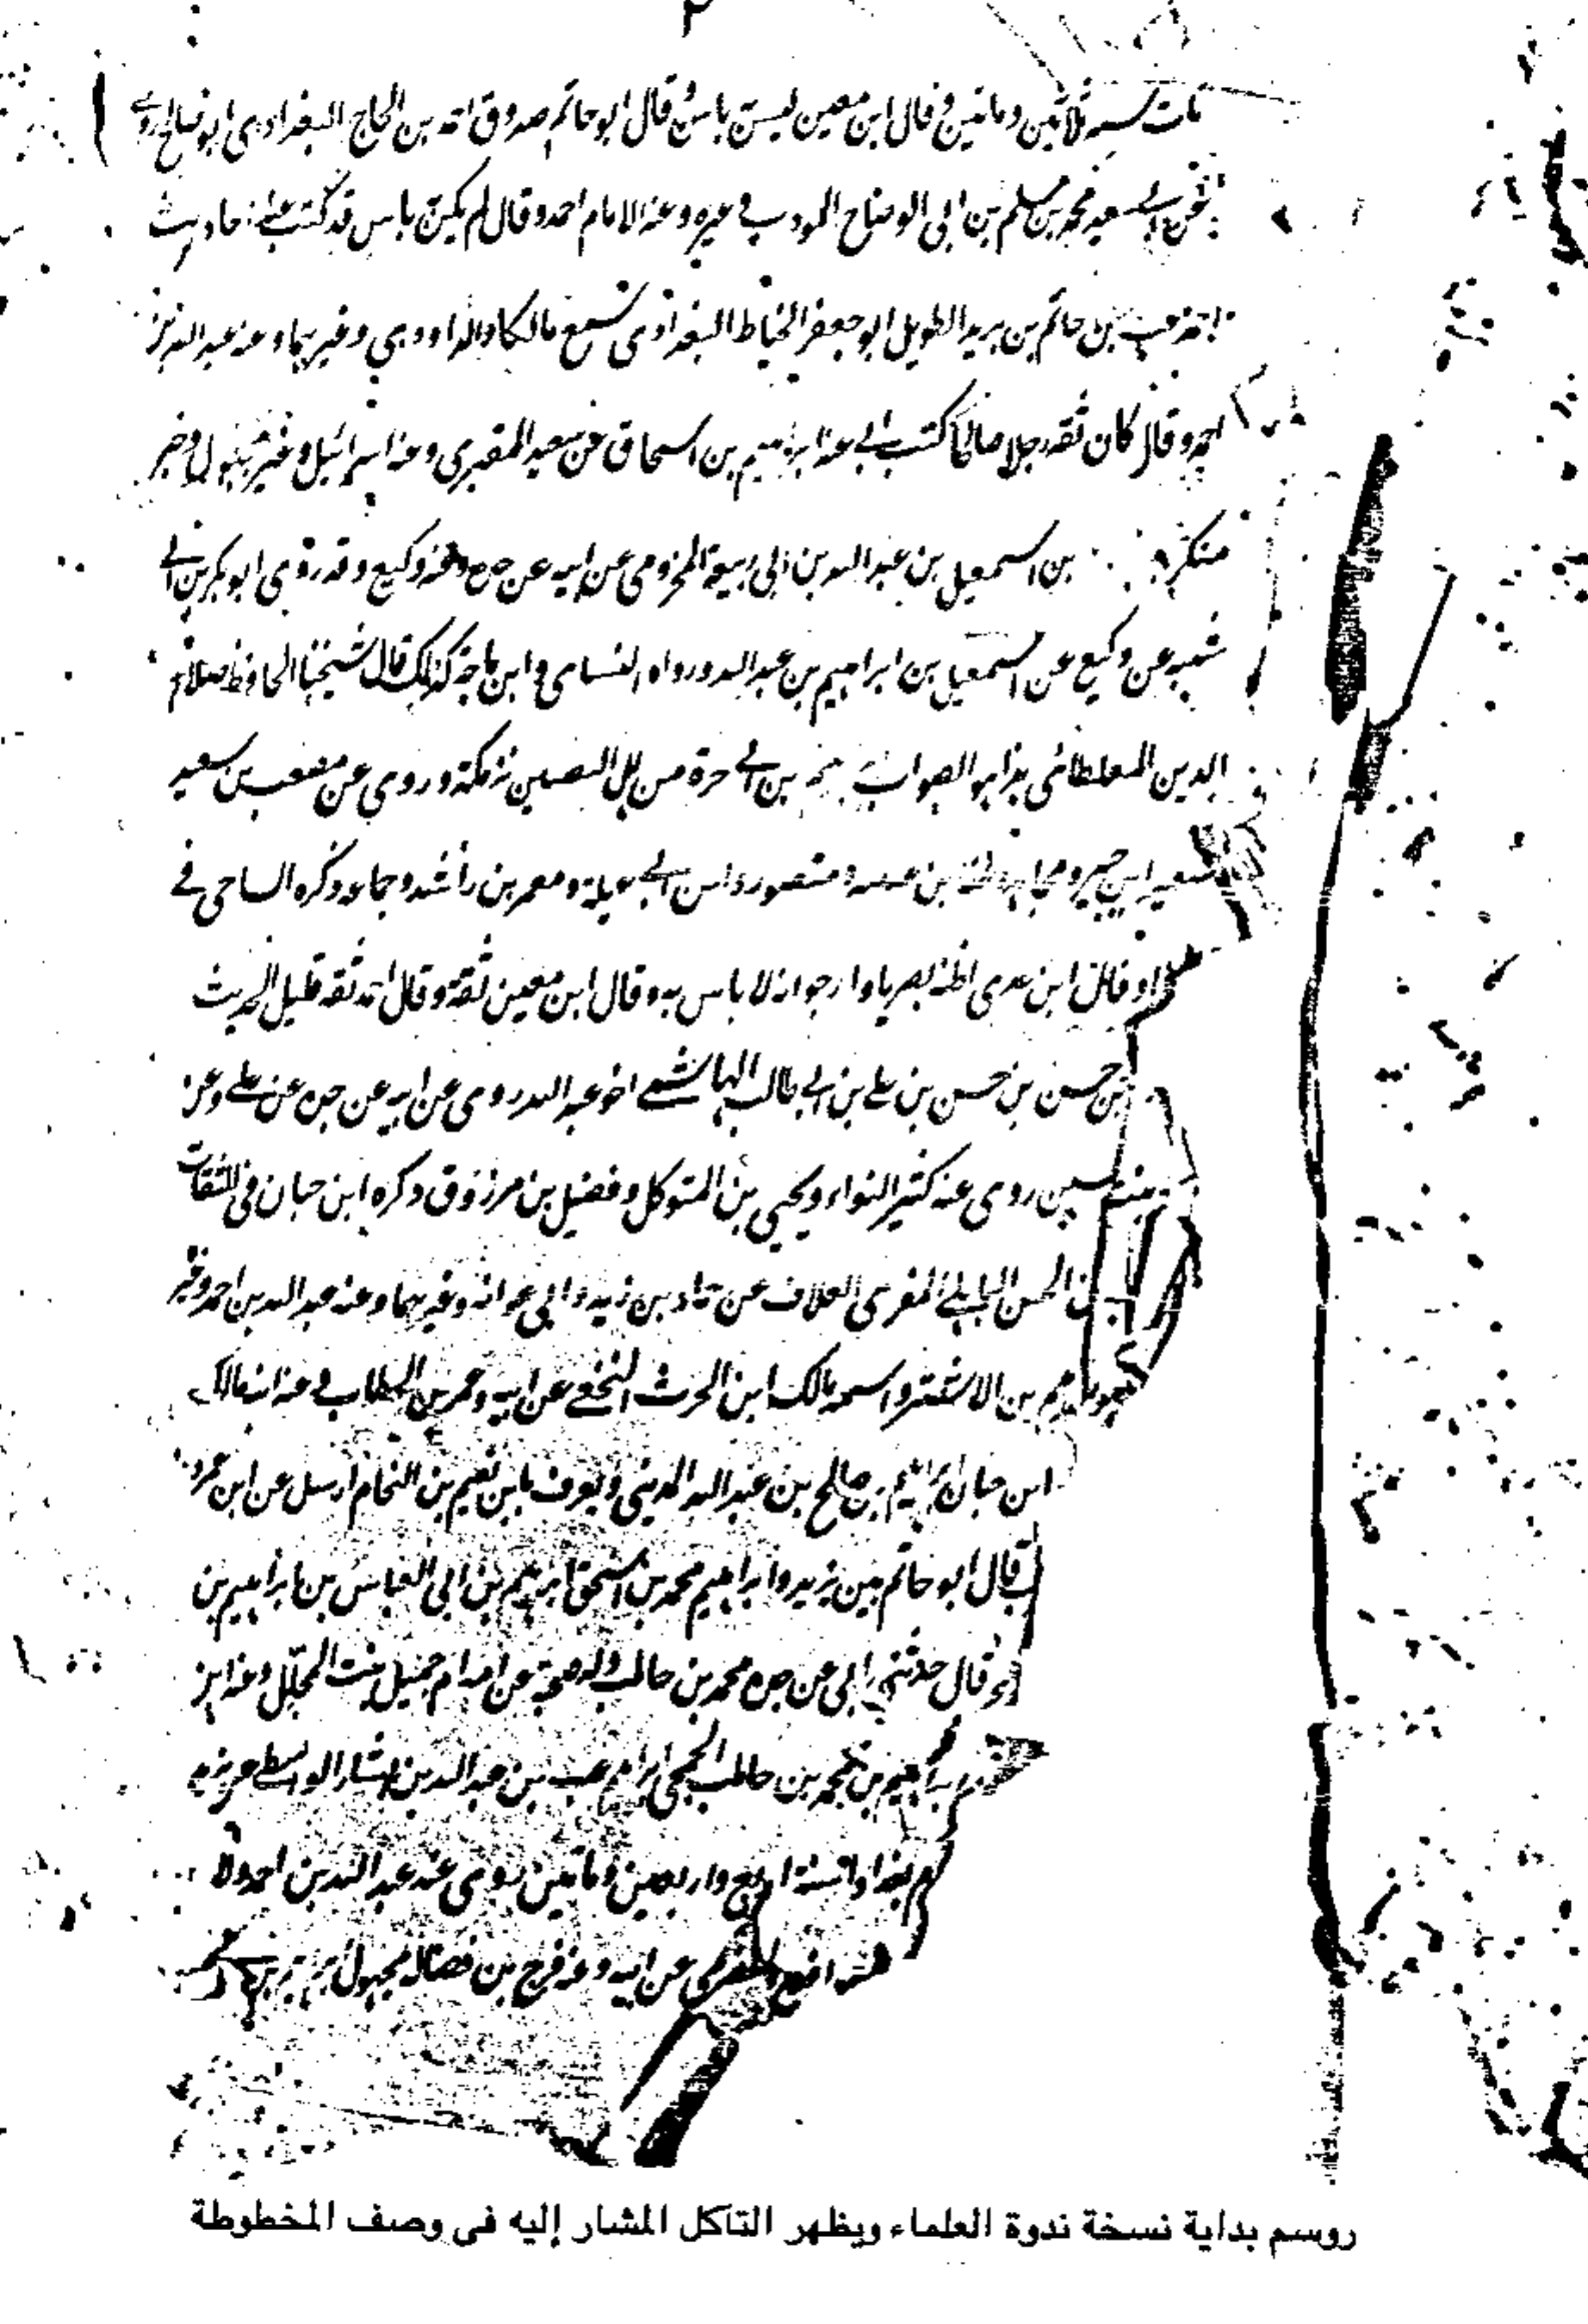 ٢
مات سنة ثلاثين ومائتين وقال ابن معين ليس به باس وقال ابو حاتم صدوق احمد بن الحجاج البغدادي ابو صالح روى
عن ابي سعيد محمد بن مسلم بن ابي الوضاح المودب وغيره وعنه الامام احمد وقال لم يكن به باس قد كتبت عنه احاديث
احمد بن حاتم بن يزيد الطويل ابو جعفر الخياط البغدادي سمع مالكا والداوردي وغيرهما وعنه عبد الله بن
احمد وقال كان ثقة رجلا صالحا كتب ابي عنه ابراهيم بن اسحاق عن سعيد المقبري وعنه اسرائيل وغيره مجهول وخبر
منكر بن اسمعيل بن عبد الله بن ابي ربيعة المخزومي عن ابيه عن جده وعنه وكيع وقد روى ابو بكر بن ابي
شيبه عن وكيع عن اسمعيل بن ابراهيم بن عبد الله ورواه النسامى وابن ماجة كذلك قال شيخنا الحافظ علاء
الدين المغلطائي هذا هو الصواب بن ابي حرة من اهل النصيبين نزل مكة وروى عن مصعب بن سعيد
سعيد ابن جبير ومجاهد وعنه ابن ومنصور وابن ابي ومعمر بن راشد وجماعه وذكره الساجى في
وقال ابن عدى اظنه بصريا وارجو انه لا باس به وقال ابن معين ثقة وقال احمد ثقة قليل الحديث
بن حسن بن حسن بن علي بن ابي طالب الهاشمي اخو عبد الله روى عن ابيه عن جده عن علي وعن
بنت حسين روى عنه كثير النواء ويحيى بن المتوكل وفضيل بن مرزوق ذكره ابن حبان في الثقات
بن الحسن الباهلي المقرى العلاف عن حماد بن زيد وابي عوانة وغيرهما وعنه عبد الله بن احمد وغيره
بن الاشتر واسمه مالك ابن الحرث النخعي عن ابيه وعمر بن الخطاب وعنه ابنه مالك
ابن حبان ابراهيم بن صالح بن عبد الله المديني ويعرف بابن نعيم بن النحام ارسل عن ابن عمر
قال ابو حاتم بين يزيد وابراهيم محمد بن اسحق ابراهيم بن ابي العباس بن ابراهيم بن
وقال حدثني ابي عن جده محمد بن حاطب وله صحبة عن امه ام جميل بنت المجلل وعنه ابن
ابراهيم بن محمد بن حاطب الجمحي ابراهيم بن عبد الله بن بشار الواسطي
بغداد سنة اربع واربعين ومائتين روى عنه عبد الله بن احمد
عن ابيه وعنه فرج بن فضالة مجهول
روسم بداية نسخة ندوة العلماء ويظهر التآكل المشار إليه فى وصف المخطوطة